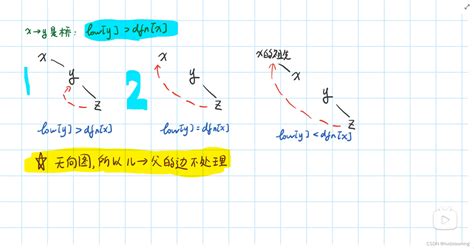 x→y是桥: low[y] > dfn[x]
1
x
y
z
low[y] > dfn[x]
2
x
y
z
low[y] = dfn[x]
x的祖先
x
y
z
low[y] < dfn[x]
☆ 无向图,所以儿→父的边不处理